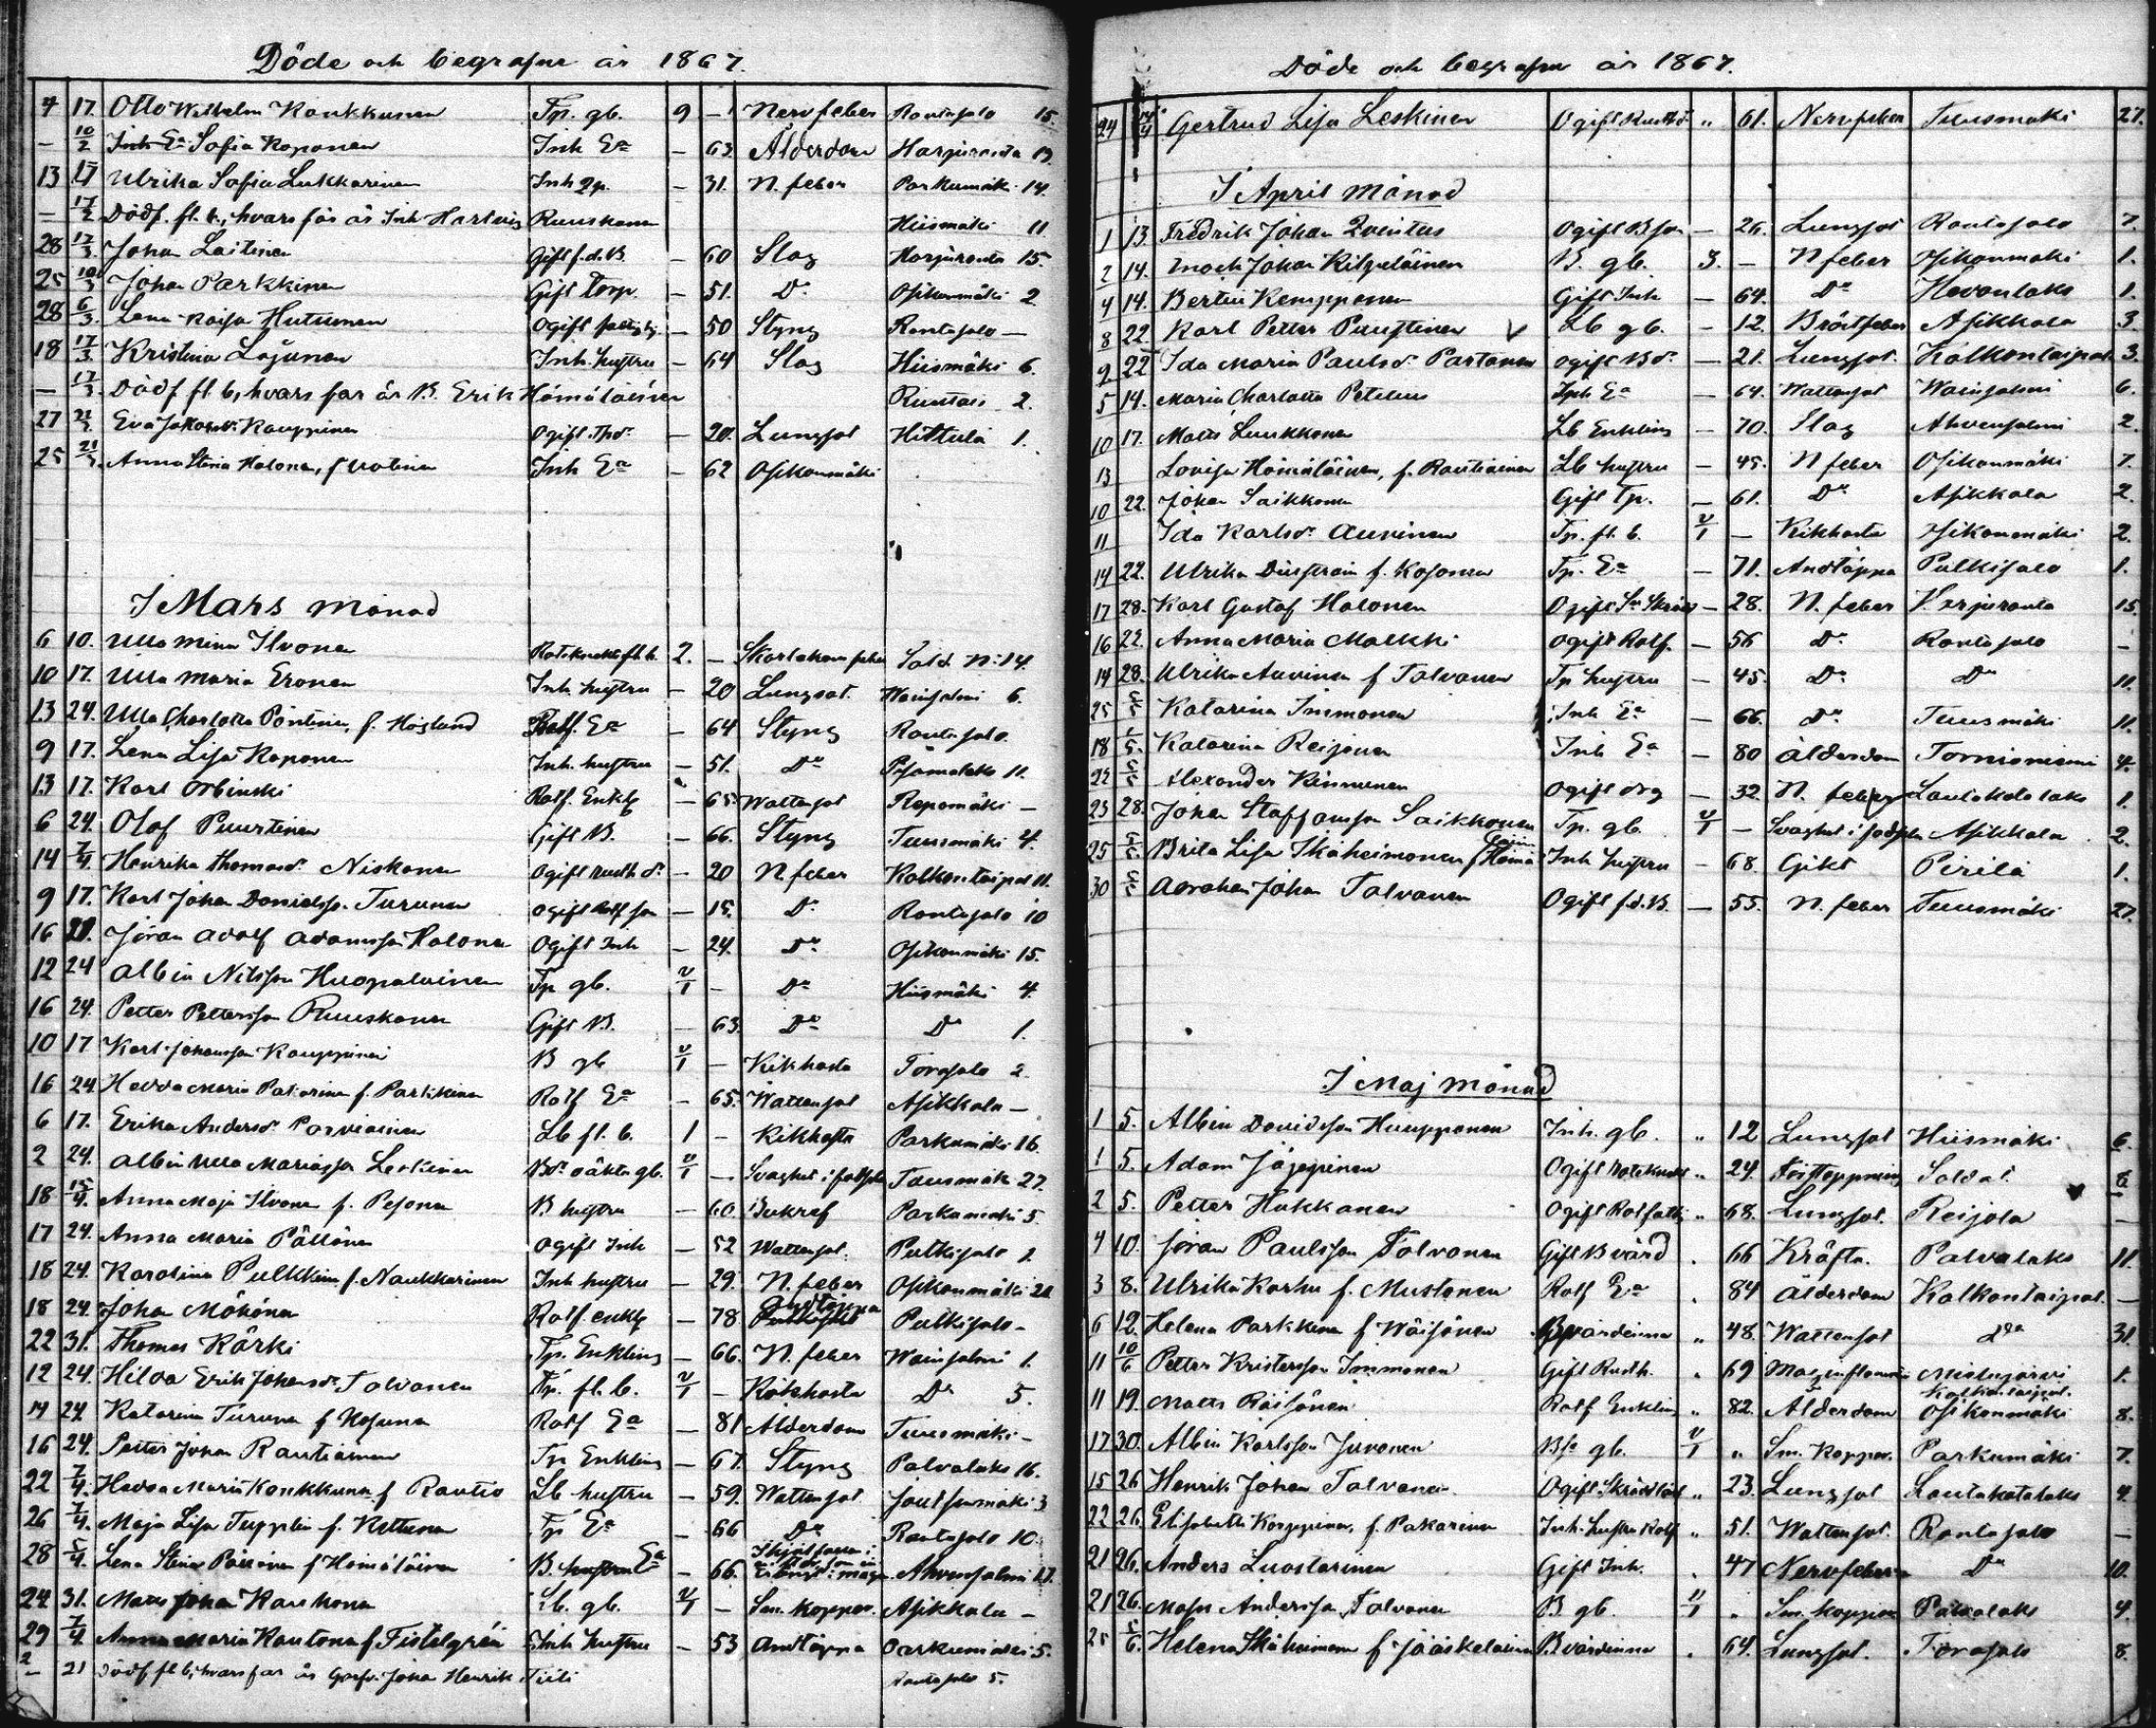 Döde och begrafne år 1867.
4 17. Otto Wilhelm Kaukkunen Tp. gb. 9 – Nervfeber Rantasalo 15.
– 10/2 Inh. Ea Sofia Koponen Inh Ea – 63. Ålderdom Harjuranta 13.
13 Ulrika Sofia Lukkarinen Inh – 31. N. feber Parkumäki 14.
– 17/2 Dödf. fl. b., hvars far är Inh Hartvig Ruuskanen Hiismäki 11
28 17/3. Johan Laitinen Gift f.d. B. – 60 Slag Harjuranta 15.
25 10/3 Johan Parkkinen Gift Torp. – 51. Do Osikonmäki 2
28 6/3. Lena Kaisa Hutunen Ogift – 50 Styng Rantasalo –
18 17/3. Kristina Lajunen Inh. hustru – 64 Slag Hiismäki 6.
– 17/3. Dödf fl b, hvars far är B. Erik Hämäläinen 2.
27 Eva Kauppinen Ogift – 20. Lungsot Hittula 1.
25 21/3. Anna Stina Halonen, f Inh Ea – 62 Osikonmäki
I Mars månad
6 10. Ulla Mina Ilvonen 2. – Sold. No 14.
10 17. Ulla Maria Eronen Inh hustru – 20 Lungsot. Wäinsalmi 6.
13 24. Ulla Charlotta Pöntinen, f. Höglund Rotf. Ea – 64 Styng Rantasalo
9 17. Lena Lisa Koponen Inh. hustru – 51. Do 11.
13 17. Karl Orbinski Rotf. Enkl – 65. Wattensot Repomäki –
6 24. Olof Puurtinen Gift B. – 66. Styng Tuusmäki 4.
14 7/4. Henrika Thomasdr. Niskanen Ogift – 20 N. feber Kalkontaipal 11.
9 17. Karl Johan Danielss. Turunen Ogift Rotf son – 15. Do Rantasalo 10
16 Jöran Adolf Adamsson Halonen Ogift Inh – 24. Do Osikonmäki 15.
12 24 Albin Nilsson Huopalainen Tp gb. – Do Hiismäki 4.
16 24. Petter Pettersson Ruuskanen Gift B. – 63. Do Do 1.
10 17 Karl Johansson Kauppinen B gb – Kikhosta Torasalo 2.
16 24. Hedda Maria Pakarinen f. Parkkinen Rotf Ea – 65. Wattensot Asikkala –
6 17. Erika Andersdr. Parviainen Lb fl. b. 1 – Kikhosta Parkumäki 16.
2 24. Albin Ulla Mariasson Leskinen oäkta gb. – Tuusmäki 27.
18 15/4. Anna Maja Ilvonen f. Pesonen B hustru – 60. Bukref Parkumäki 5.
17 24. Anna Maria Pällönen Ogift Inh – 52 Wattensot. Pulkisalo 1.
18 24. Karolina Pulkkinen f. Naukkarinen Inh hustru – 29. N. feber Osikonmäki
18 24. Johan Möhönen Rotf. enkl – 78. Andtäppa Pulkisalo –
22 31. Thomas Kärki Tp. Enkling – 66. N. feber Wäinsalmi 1.
12 24. Hilda Erik Johansdr. Tolvanen Tp. fl. b. – Kikhosta Do 5.
14 24. Katarina Turunen f Kosunen Rotf Ea – 81 Ålderdom Tuusmäki –
16 24. Petter Johan Rautiainen Tp Enkling – 67. Styng Palvalaks 16.
22 7/4. Hedda Maria Konkkunen f Rautio Lb hustru – 59. Wattensot Joutsenmäki 3
26 7/4. Maja Lisa Tupplin f. Kettunen Tp Ea – 66 Do Rantasalo 10
28 Lena Stina f Hämäläinen B. Ea – 66. Ahvensalmi 17.
24 31. Matts Johan Lb. gb. – Sm. koppor. Asikkala –
29 7/4. Anna Maria f Fistelgrén Inh hustru – 53 Andtäppa Parkumäki 5.
– 21 Dödf fl b, hvars far är Johan Henrik Tiili Rantasalo 5.
Döde och begrafne år 1867.
24 14/4 Gertrud Lisa Leskinen Ogift " 61. Nervfeber Tuusmäki 27.
I April månad
1 13. Fredrik Johan Qventus Ogift B son – 26. Lungsot Rantasalo 7.
2 14. Enoch Johan Kilpeläinen B. gb. 3. – N feber Osikonmäki 1.
4 14. Bertin Kempponen Gift Inh – 64. Do Hevonlaks 1.
8 22. Karl Petter Puustinen Lb gb. – 12. Bröstfeber Asikkala 3
9 22 Ida Maria Paulsdr. Partanen ogift Bdr. – 21. Lungsot. Kalkontaipal 3.
5 14. Maria Charlotta Petelius Inh Ea – 64. Wattensot Wäinsalmi 6.
10 17. Matts Luukkonen Lb Enkling – 70. Slag Ahvensalmi 2.
13 Lovisa Hämäläinen, f. Rautiainen Lb hustru – 45. N feber Osikonmäki 7.
10 22. Johan Saikkonen Gift Tp. – 61. Do Asikkala 2.
11 Ida Karlsdr. Auvinen Tp. fl. b. – Kikhosta Osikonmäki 2.
14 22. Ulrika f. Kosonen Tp. Ea – 71. Andtäppa Pulkisalo 1.
17 28. Karl Gustaf Halonen Ogift – 28. N. feber Harjuranta 15.
16 22. Anna Maria Malkki Ogift Rotf. – 56 Do Rantasalo –
14 28. Ulrika Auvinen f Tolvanen Tp hustru – 45. Do Do 11.
25 5/5 Katarina Immonen Inh Ea – 66. Do Tuusmäki 11.
18 5/5. Katarina Reijonen Inh Ea – 80 Ålderdom Tornioniemi 4.
22 5/5 Alexander Kinnunen Ogift drg – 32. N. feber Lautakotalaks 1.
23 28. Johan Staffansson Saikkonen Tp. gb. – Asikkala 2.
25 5/5. Brita Lisa Ikäheimonen f Inh hustru – 68. Gikt Pirilä 1.
30 5/5 Abraham Johan Tolvanen Ogift f.d. B. – 55. N. feber Tuusmäki 27.
I Maj månad
1 5. Albin Davidsson Huupponen Inh. gb. " 12 Lungsot Hiismäki 6.
1 5. Adam Jäppinen Ogift Rotekarl " 24. Förstoppning Soldat 6
2 5. Petter Hukkanen Ogift Rotfattig " 68. Lungsot. Reijola –
4 10. Jöran Paulsson Tolvanen Gift B värd . 66 Kräfta. Palvalaks 11.
3 8. Ulrika Karhu f. Mustonen Rotf Ea . 84 Ålderdom Kalkontaipal. –
6 12. Helena Parkkinen f Wäisänen Bvärdinna " 48. Wattensot Do 31.
11 10/6 Petter Kristersson Immonen Gift Rusth. . 69 1.
11 19. Matts Räisänen Rotf Enkling " 82. Ålderdom Kalkontaipal. Osikonmäki 8.
17 30. Albin Karlsson Juvonen gb. " Sm. koppor. Parkumäki 7.
15 26 Henrik Johan Tolvanen Ogift " 23. Lungsot Lautakotalaks 4.
22 26. Elisabeth Koppinen, f. Pakarinen Inh. hustru Rotf " 51. Wattensot. Rantasalo –
21 26. Anders Luostarinen Gift Inh. . 47 Nervfeber Do 10.
21 26. Moses Andersson Tolvanen B gb. " Sm. koppor Palvalaks 4.
25 5/6. Helena Ikäheimonen f Jääskeläinen Bvärdinna . 64. Lungsot. Torasalo 8.